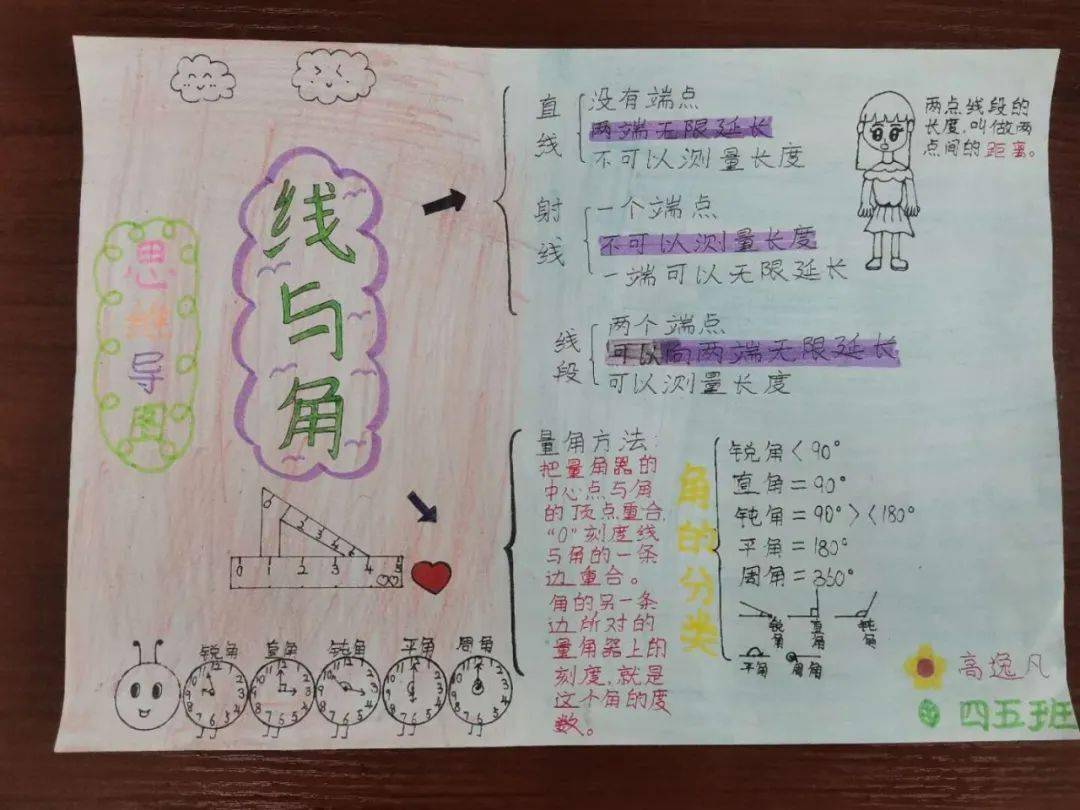 思维导图
线与角
直线
没有端点
两端无限延长
不可以测量长度
射线
一个端点
不可以测量长度
一端可以无限延长
线段
两个端点
可以向两端无限延长
可以测量长度
两点线段的
长度,叫做两
点间的距离。
量角方法:
把量角器的
中心点与角
的顶点重合,
“0”刻度线
与角的一条
边重合。
角的另一条
边所对的
量角器上的
刻度,就是
这个角的度
数。
角的分类
锐角<90°
直角=90°
钝角=90°><180°
平角=180°
周角=360°
锐角
直角
钝角
平角
周角
0 1 2 3 4 5
锐角 直角 钝角 平角 周角
高逸凡
四五班